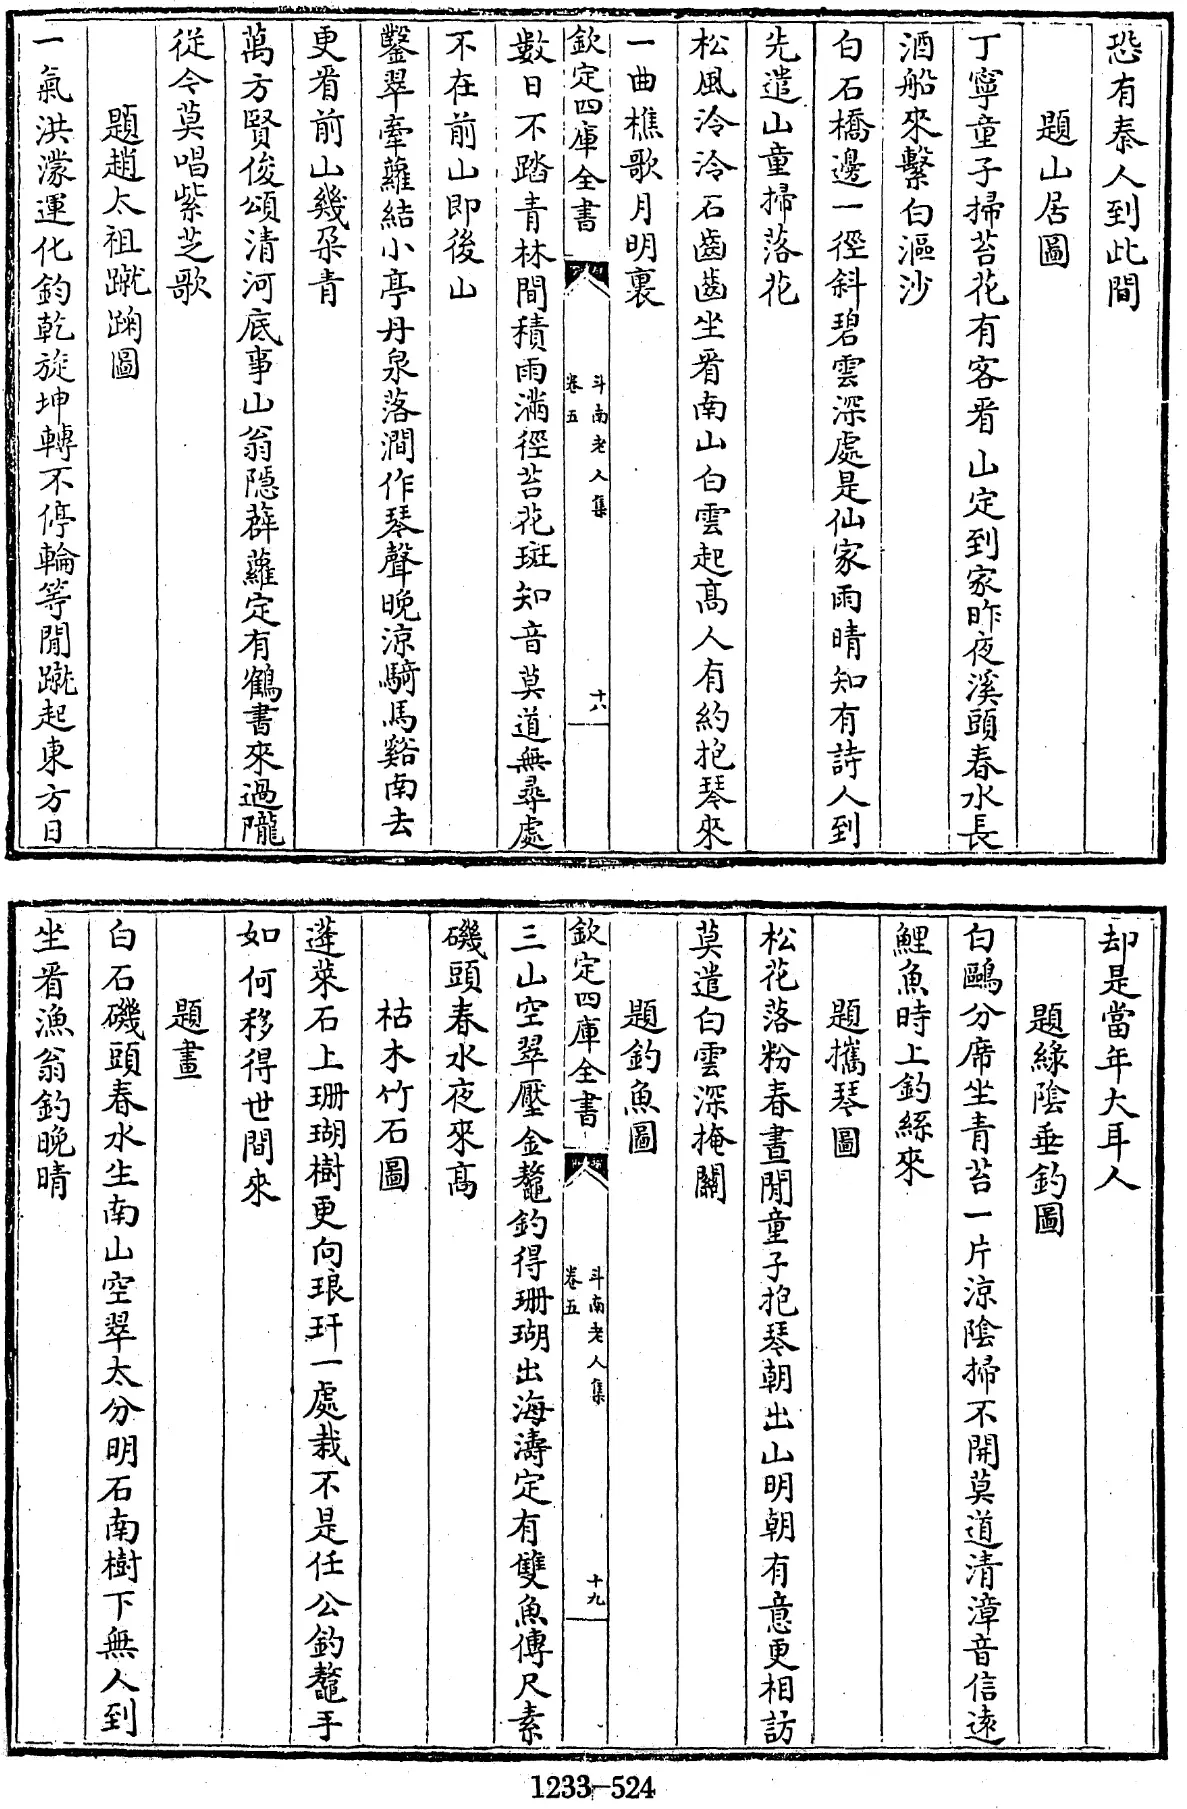 恐有秦人到此間
題山居圖
丁寧童子掃苔花有客看山定到家昨夜溪頭春水長
酒船來繫白漚沙
白石橋邊一徑斜碧雲深處是仙家雨晴知有詩人到
先遣山童掃落花
松風泠泠石齒齒坐看南山白雲起高人有約抱琴來
一曲樵歌月明裏
欽定四庫全書
斗南老人集
卷五
十八
數日不踏青林間積雨滿徑苔花斑知音莫道無尋處
不在前山即後山
鑿翠牽蘿結小亭丹泉落澗作琴聲晚涼騎馬谿南去
更看前山幾朶青
萬方賢俊頌清河底事山翁隠薜蘿定有鶴書來過隴
從今莫唱紫芝歌
題趙太祖蹴踘圖
一氣洪濛運化鈞乾旋坤轉不停輪等閒蹴起東方日
却是當年大耳人
題綠陰垂釣圖
白鷗分席坐青苔一片涼陰掃不開莫道清漳音信遠
鯉魚時上釣絲來
題攜琴圖
松花落粉春晝閒童子抱琴朝出山明朝有意更相訪
莫遣白雲深掩關
題釣魚圖
欽定四庫全書
斗南老人集
卷五
十九
三山空翠壓金鼇釣得珊瑚出海濤定有雙魚傳尺素
磯頭春水夜來高
枯木竹石圖
蓬萊石上珊瑚樹更向琅玕一處栽不是任公釣鼇手
如何移得世間來
題畫
白石磯頭春水生南山空翠太分明石南樹下無人到
坐看漁翁釣晚晴
1233-524